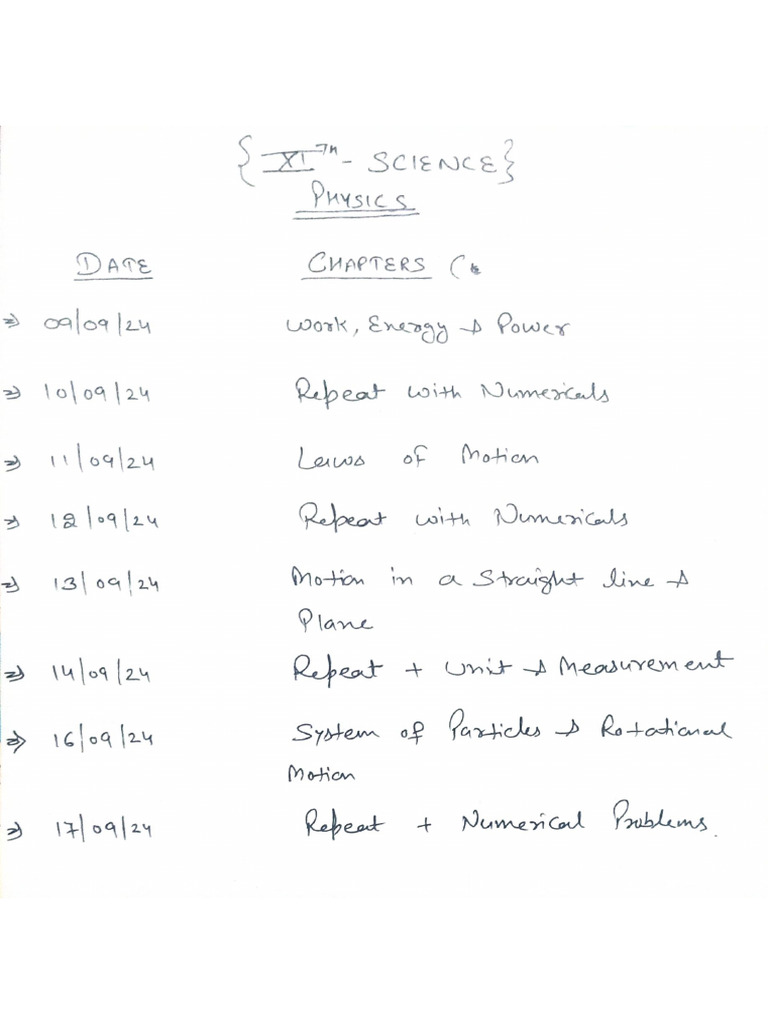 {XITH - SCIENCE}
PHYSICS
DATE CHAPTERS (
=> 09/09/24 Work, Energy & Power
=> 10/09/24 Repeat with Numericals
=> 11/09/24 Laws of Motion
=> 12/09/24 Repeat with Numericals
=> 13/09/24 Motion in a straight line &
Plane
=> 14/09/24 Repeat + Unit & Measurement
=> 16/09/24 System of Particles & Rotational
Motion
=> 17/09/24 Repeat + Numerical Problems.